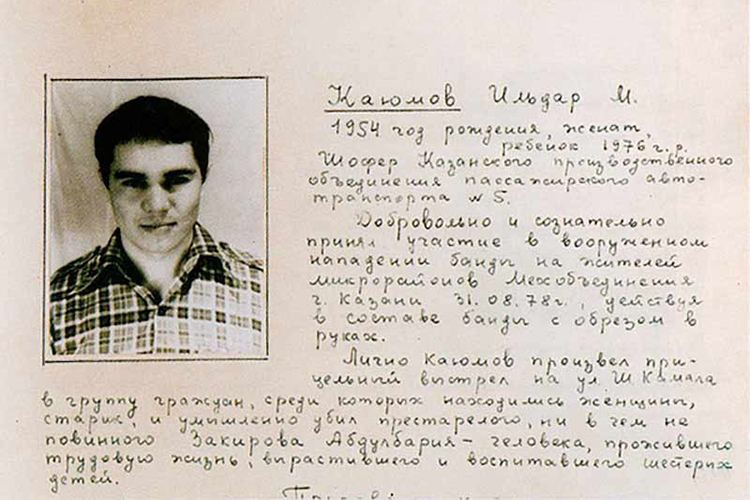 Каюмов Ильдар М.
1954 год рождения, женат,
ребенок 1976 г.р.
Шофер Казанского производственного
объединения пассажирского авто-
транспорта № 5.
Добровольно и сознательно
принял участие в вооруженном
нападении банды на жителей
микрорайонов Мехобъединения
г. Казани 31.08.78г., действуя
в составе банды с обрезом в
руках.
Лично Каюмов произвел при-
цельный выстрел на ул. Ш. Камала
в группу граждан, среди которых находились женщины,
старик, и умышленно убил престарелого, ни в чем не
повинного Закирова Абдулбария – человека, прожившего
трудовую жизнь, вырастившего и воспитавшего шестерых
детей.